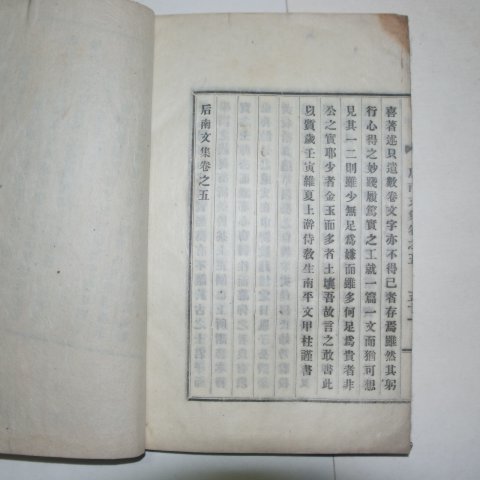 喜著述只遺數卷文字亦不得已者存焉雖然其躬
行心得之妙踐履篤實之工就一篇一文而猶可想
見其一二則雖少無足爲嫌而雖多何足爲貴者非
公之實耶少者金玉而多者土壤吾故言之敢書此
以質歲壬寅維夏上澣侍敎生南平文甲柱謹書
后南文集卷之五